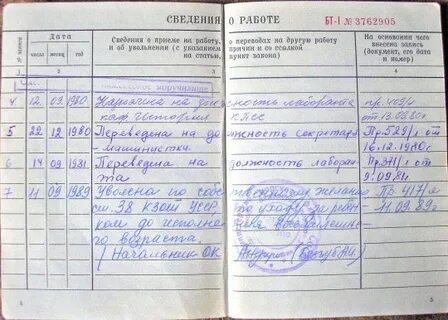 СВЕДЕНИЯ О РАБОТЕ
БТ-I № 3762905
№ записи
Дата
число
месяц
год
Сведения о приеме на работу, о переводах на другую работу
и об увольнении (с указанием причин и со ссылкой
на статью, пункт закона)
На основании чего
внесена запись
(документ, его дата
и номер)
1 2 3 4
4 12 09 1980 на должность лаборанта
каф истории
от 13.0980г
5 22 12 1980 Переведена на должность секретаря Пр 529/л от
-машинистка. 16.12.1980г
6 14 09 1981 Переведена на должность лаборан Пр.
та 9.0981г
7 11 09 1989 Уволена по собственному желанию Пр 417/л
ст. 38 КЗОТ УССР по уходу за ребен от 11.0989г
ком до исполне
го возраста.
/ Начальник ОК
4 5